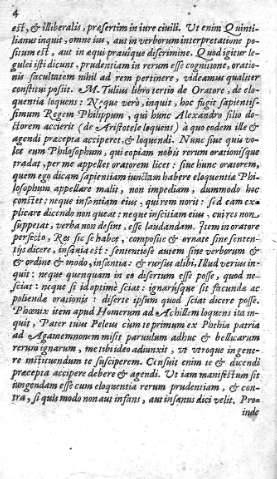 4
est, & illiberalis, præsertim in iure ciuili. Ut enim Quinti-
lianus inquit, omne ius, aut in verborum interpretatione po-
situm est, aut in æqui prauíque discrimine. Quod igitur le-
gulei isti dicunt, prudentiam in rerum esse cognitione, oratio-
nis facultatem nihil ad rem pertinere, videamus qualiter
constitui possit. M. Tulius libro tertio de Oratore, de elo-
quentia loquens: Neque verò, inquit, hoc fugit sapientis-
simum Regem Philippum, qui hunc Alexandro filio do-
ctorem accierit (de Aristotele loquens) à quo eodem ille &
agendi præcepta acciperet, & loquendi. Nunc siue quis vo-
let eum Philosophum, qui copiam nobis rerum orationísque
tradat, per me appellet oratorem licet: siue hunc oratorem,
quem ego dicam sapientiam iunctam habere eloquentiæ Phi-
losophum appellare malit, non impediam, dummodo hoc
constet: neque infantiam eius, qui rem norit: sed eam ex-
plicare dicendo non queat: neque inscitiam eius, cui res non
suppetat, verba non desint, esse laudandam. Item in oratore
perfecto, Res sic se habet, composite & ornate sine senten-
tijs dicere, insania est: sententiosè autem sine verborum &
& ordine & modo, infantia: & rursus alibi, Illud verius in-
quit: neque quenquam in eo disertum esse posse, quod ne-
sciat: neque si id optimè sciat: ignarúsque sit facundæ ac
poliendæ orationis: disertè ipsum quod sciat dicere posse.
Phœnix item apud Homerum ad Achillem loquens ita in-
quit, Pater tuus Peleus cum te primum ex Phthia patria
ad Agamemnonem misit paruulum adhuc & bellicarum
rerum ignarum, me tibi ideo adiunxit, vt vtroque in gene-
re instituendum te susciperem. Censuit enim te & dicendi
præcepta accipere debere & agendi. Ut iam manifestum sit
iungendam esse cum eloquentia rerum prudentiam, & con-
tra, si quis modo non aut infans, aut insanus dici velit. Pro-
inde